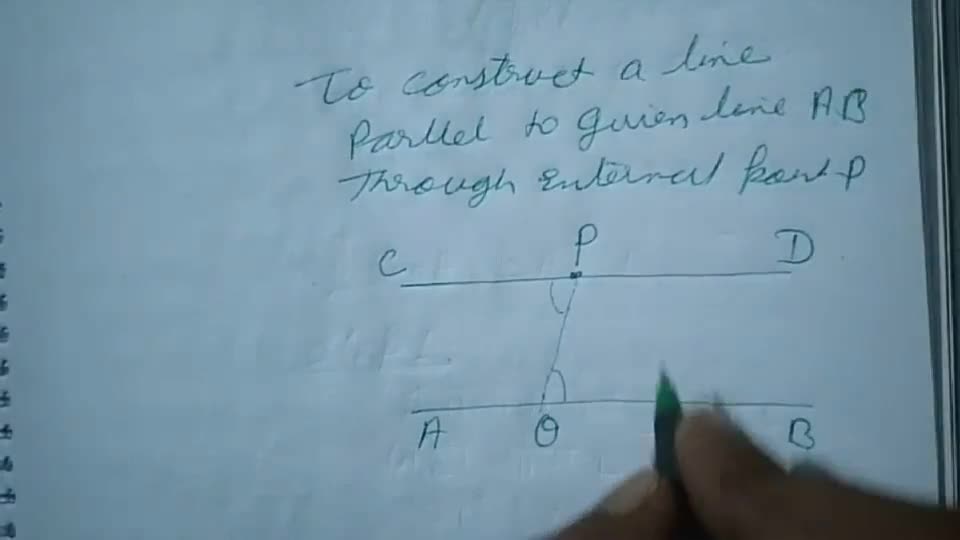 To construct a line
Parllel to given line AB
Through external point P
C P D
A O B